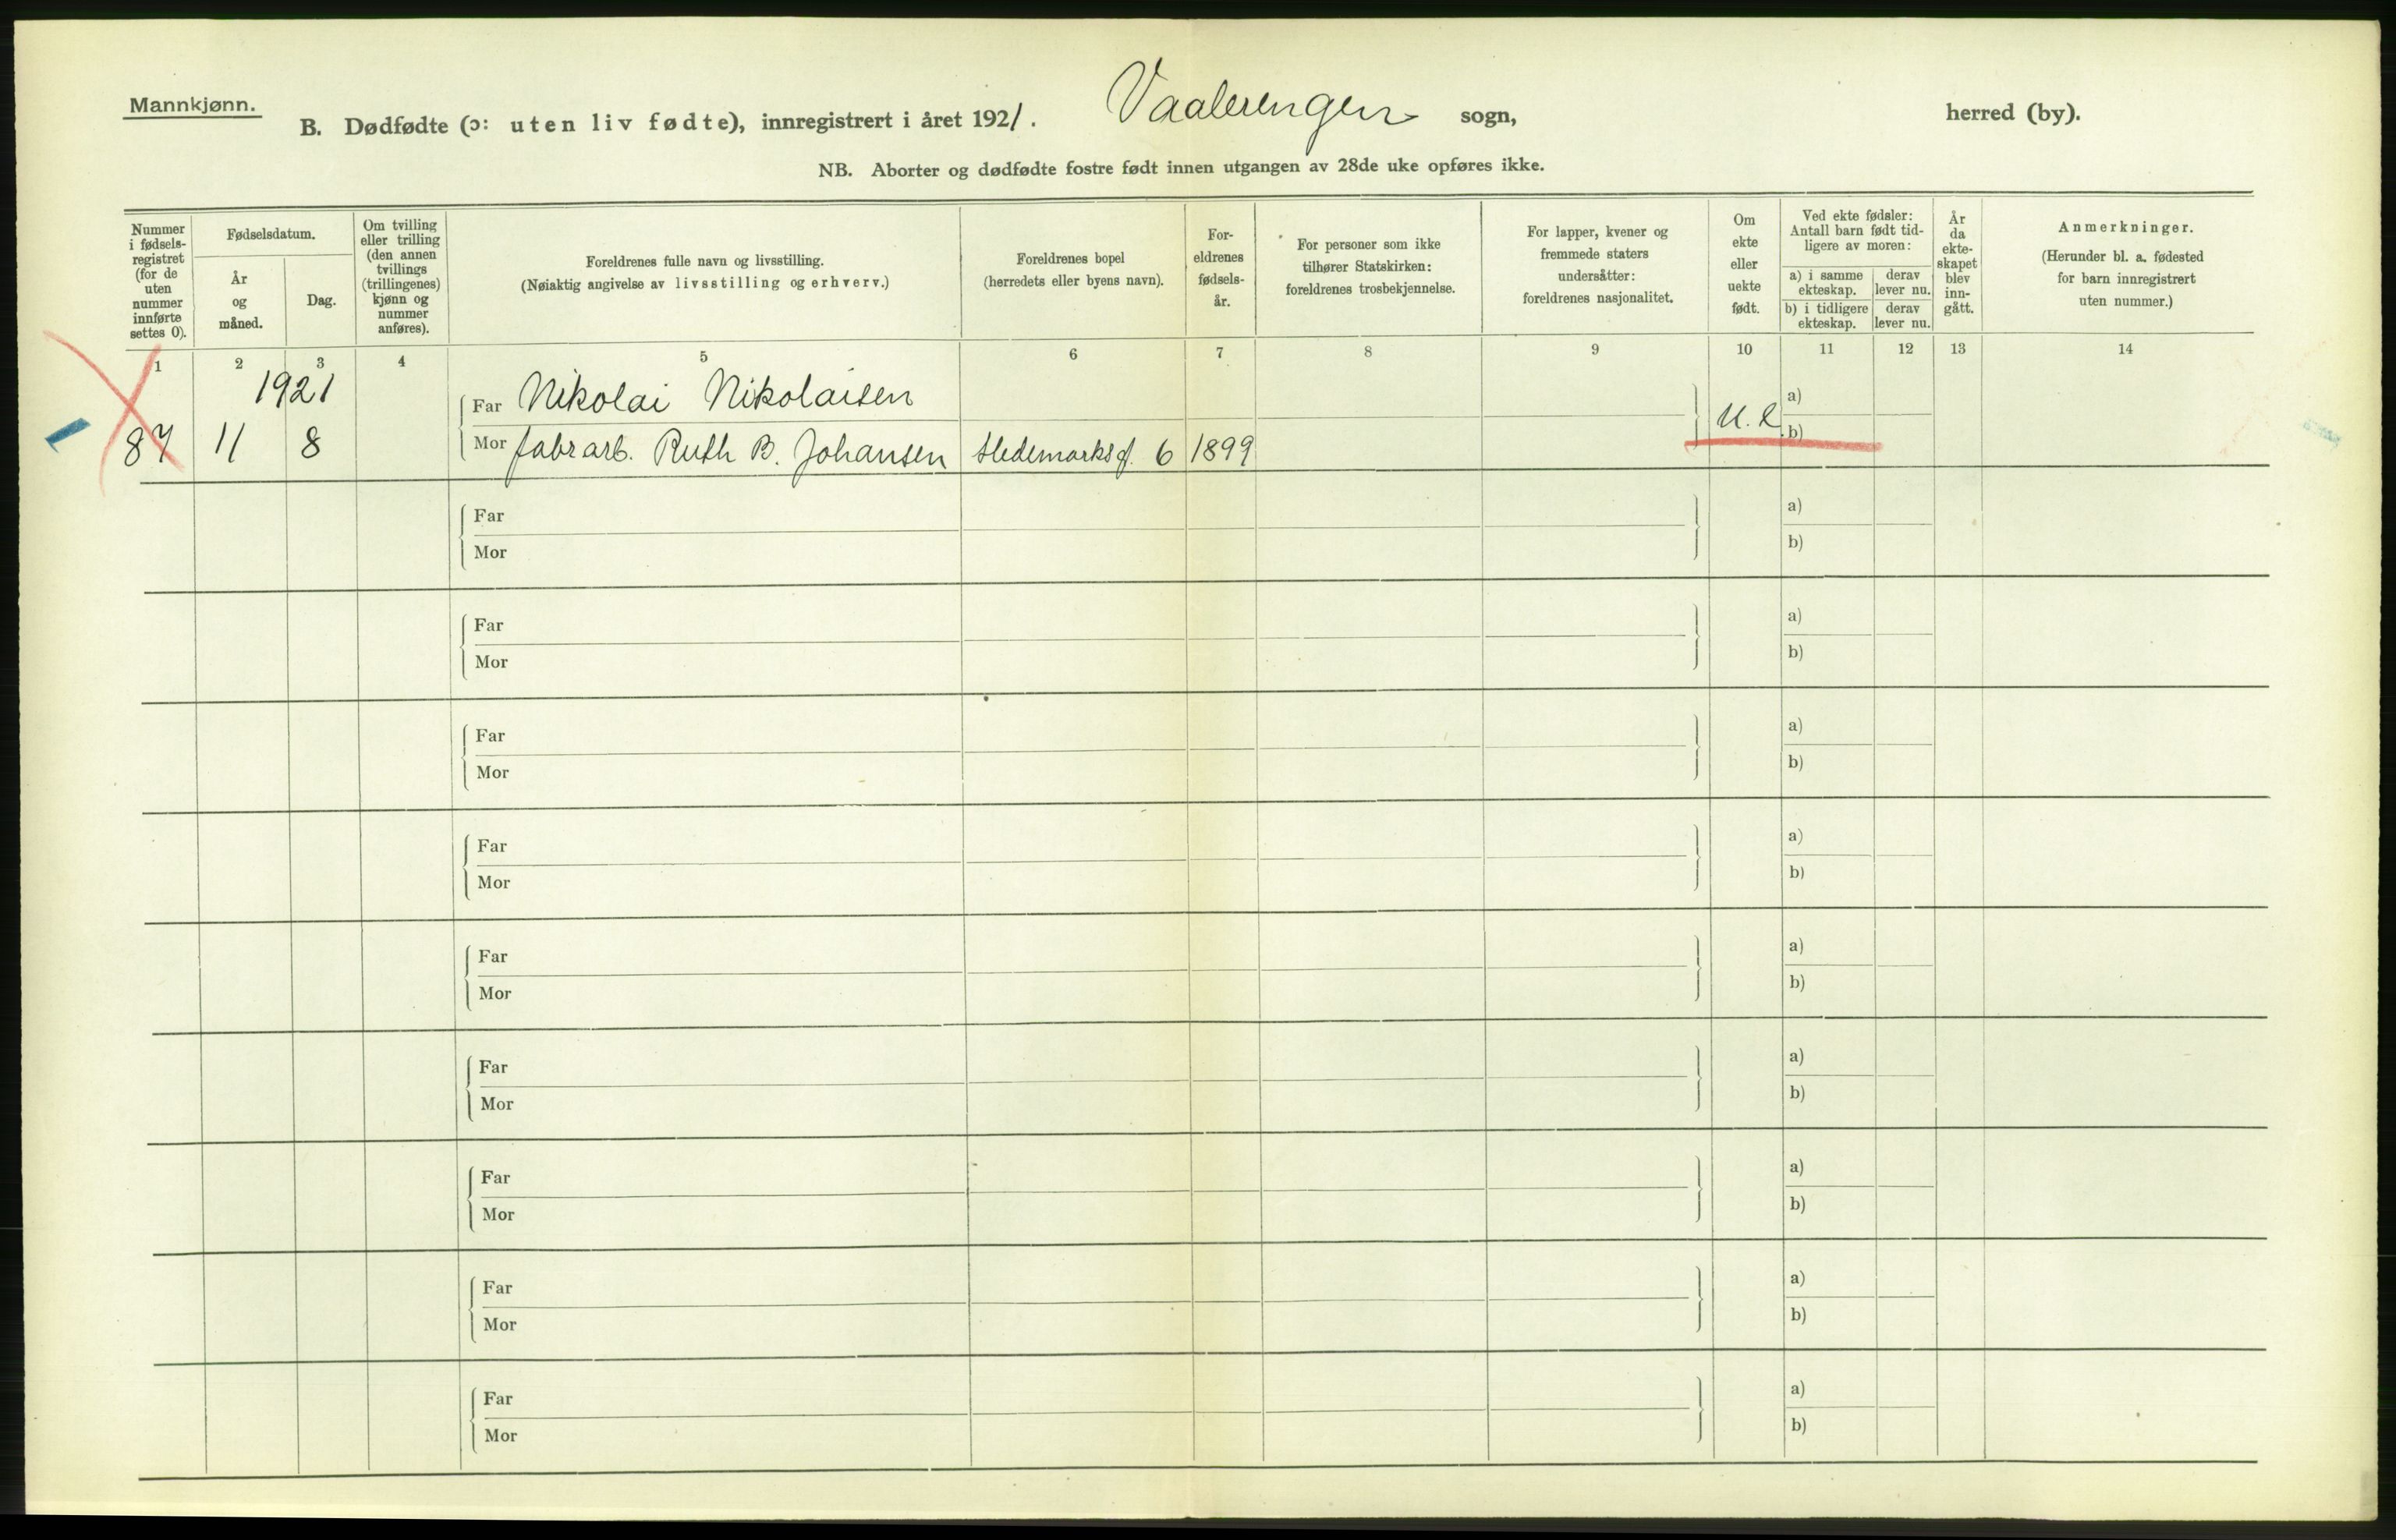 Mannkjønn.
B. Dødfødte (ɔ: uten liv fødte), innregistrert i året 1921. Vaalerengen sogn, herred (by).
NB. Aborter og dødfødte fostre født innen utgangen av 28de uke opføres ikke.
Nummer i fødsels-registret (for de uten nummer innførte settes 0).
Fødselsdatum.
År og måned.
Dag.
Om tvilling eller trilling (den annen tvillings (trillingenes) kjønn og nummer anføres).
Foreldrenes fulle navn og livsstilling.
(Nøiaktig angivelse av livsstilling og erhverv.)
Foreldrenes bopel
(herredets eller byens navn).
For-eldrenes fødsels-år.
For personer som ikke tilhører Statskirken: foreldrenes trosbekjennelse.
For lapper, kvener og fremmede staters undersåtter: foreldrenes nasjonalitet.
Om ekte eller uekte født.
Ved ekte fødsler: Antall barn født tid-ligere av moren:
a) i samme ekteskap.
derav lever nu.
b) i tidligere ekteskap.
derav lever nu.
År da ekte-skapet blev inn-gått.
Anmerkninger.
(Herunder bl. a. fødested for barn innregistrert uten nummer.)
1 2 3 4 5 6 7 8 9 10 11 12 13 14
1921
Far Nikolai Nikolaisen a)
87 11 8 Mor fabrarb. Ruth B. Johansen Hedemarksg. 6 1899 U. e. b)
Far a)
Mor b)
Far a)
Mor b)
Far a)
Mor b)
Far a)
Mor b)
Far a)
Mor b)
Far a)
Mor b)
Far a)
Mor b)
Far a)
Mor b)
Far a)
Mor b)